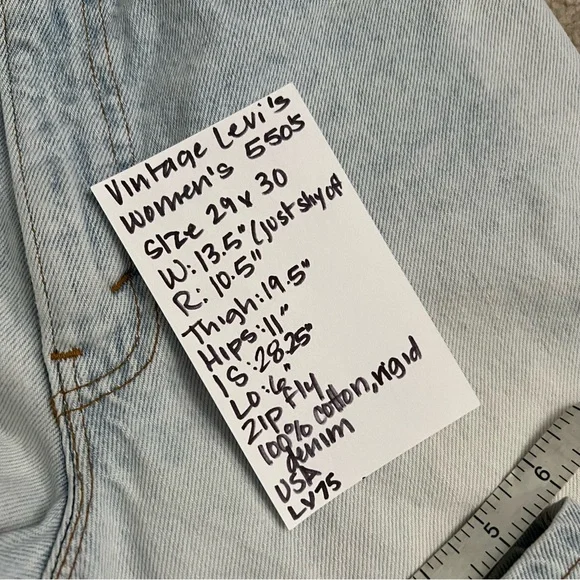 Vintage Levi's
women's 550s
SIZE 29 x 30
W: 13.5" (just shy of
R: 10.5"
Thigh: 19.5"
Hips: 11"
IS: 28.25"
LO: 6"
ZIP Fly
100% cotton, rigid
denim
USA
LV75
5 6